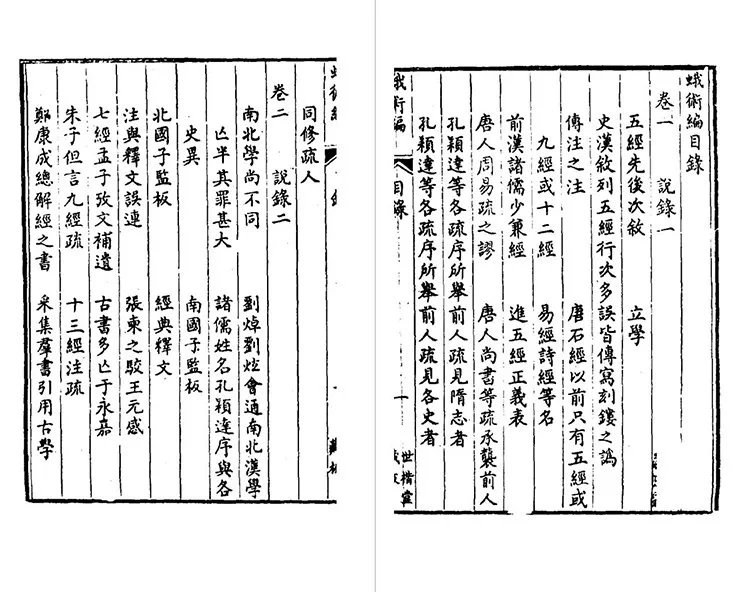 蛾術編目錄
卷一　說錄一
五經先後次敘　立學
史漢敘列五經行次多誤皆傳寫刻鏤之譌
傳注之注　唐石經以前只有五經或
九經或十二經　易經詩經等名
前漢諸儒少兼經　進五經正義表
唐人周易疏之謬　唐人尚書等疏承襲前人
孔穎達等各疏序所舉前人疏見隋志者
孔穎達等各疏序所舉前人疏見各史者
蛾術編　目錄　一　世楷堂
同修疏人
卷二　說錄二
南北學尚不同　劉焯劉炫會通南北漢學
亾半其罪甚大　諸儒姓名孔穎達序與各
史異　南國子監板
北國子監板　經典釋文
注與釋文誤連　張柬之駮王元感
七經孟子攷文補遺　古書多亾于永嘉
朱子但言九經疏　十三經注疏
鄭康成總解經之書　采集羣書引用古學